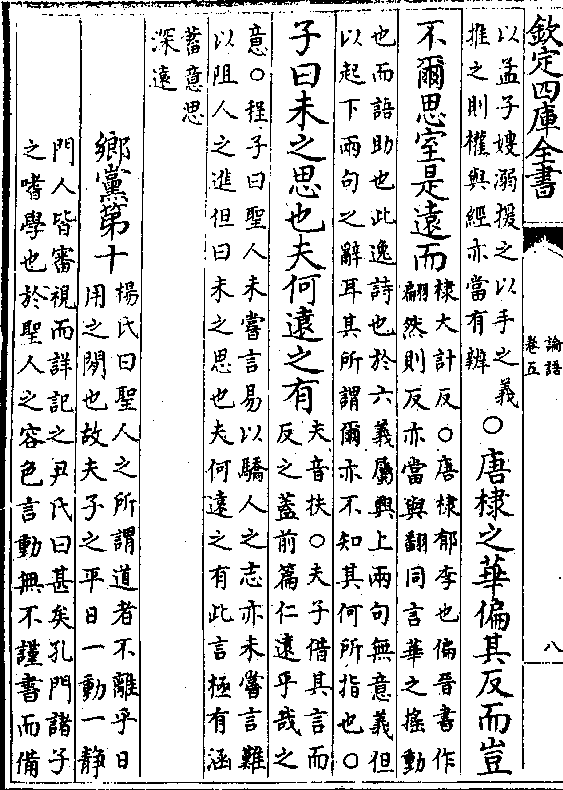 欽定四庫全書
論語
卷五
八
以孟子嫂溺援之以手之義
推之則權與經亦當有辨
○唐棣之華偏其反而豈
不爾思室是遠而
棣大計反○唐棣郁李也偏晉書作
翩然則反亦當與翻同言華之搖動
也而語助也此逸詩也於六義屬興上兩句無意義但
以起下兩句之辭耳其所謂爾亦不知其何所指也○
子曰未之思也夫何遠之有
夫音扶○夫子借其言而
反之蓋前篇仁遠乎哉之
意○程子曰聖人未嘗言易以驕人之志亦未嘗言難
以阻人之進但曰未之思也夫何遠之有此言極有涵
蓄意思
深遠
鄉黨第十
楊氏曰聖人之所謂道者不離乎日
用之間也故夫子之平日一動一靜
門人皆審視而詳記之尹氏曰甚矣孔門諸子
之嗜學也於聖人之容色言動無不謹書而備